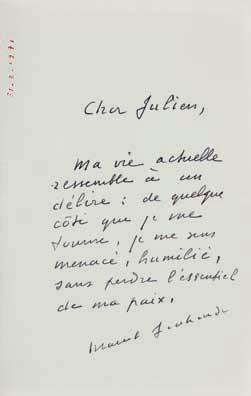 Cher Julien,
Ma vie actuelle
ressemble à un
délire : de quelque
côté que je me
tourne, je me sens
menacé, humilié,
sans perdre l'essentiel
de ma paix.
Marcel Jouhandeau